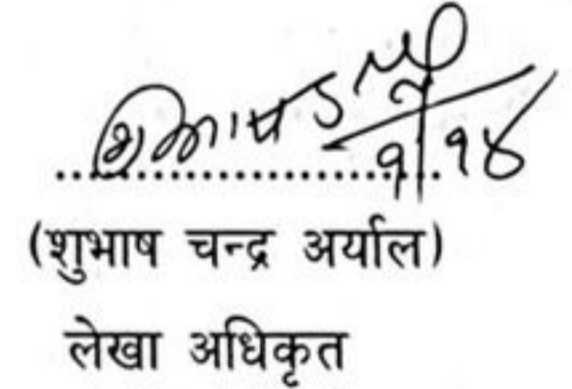 शुभाष
१/१४
(शुभाष चन्द्र अर्याल)
लेखा अधिकृत